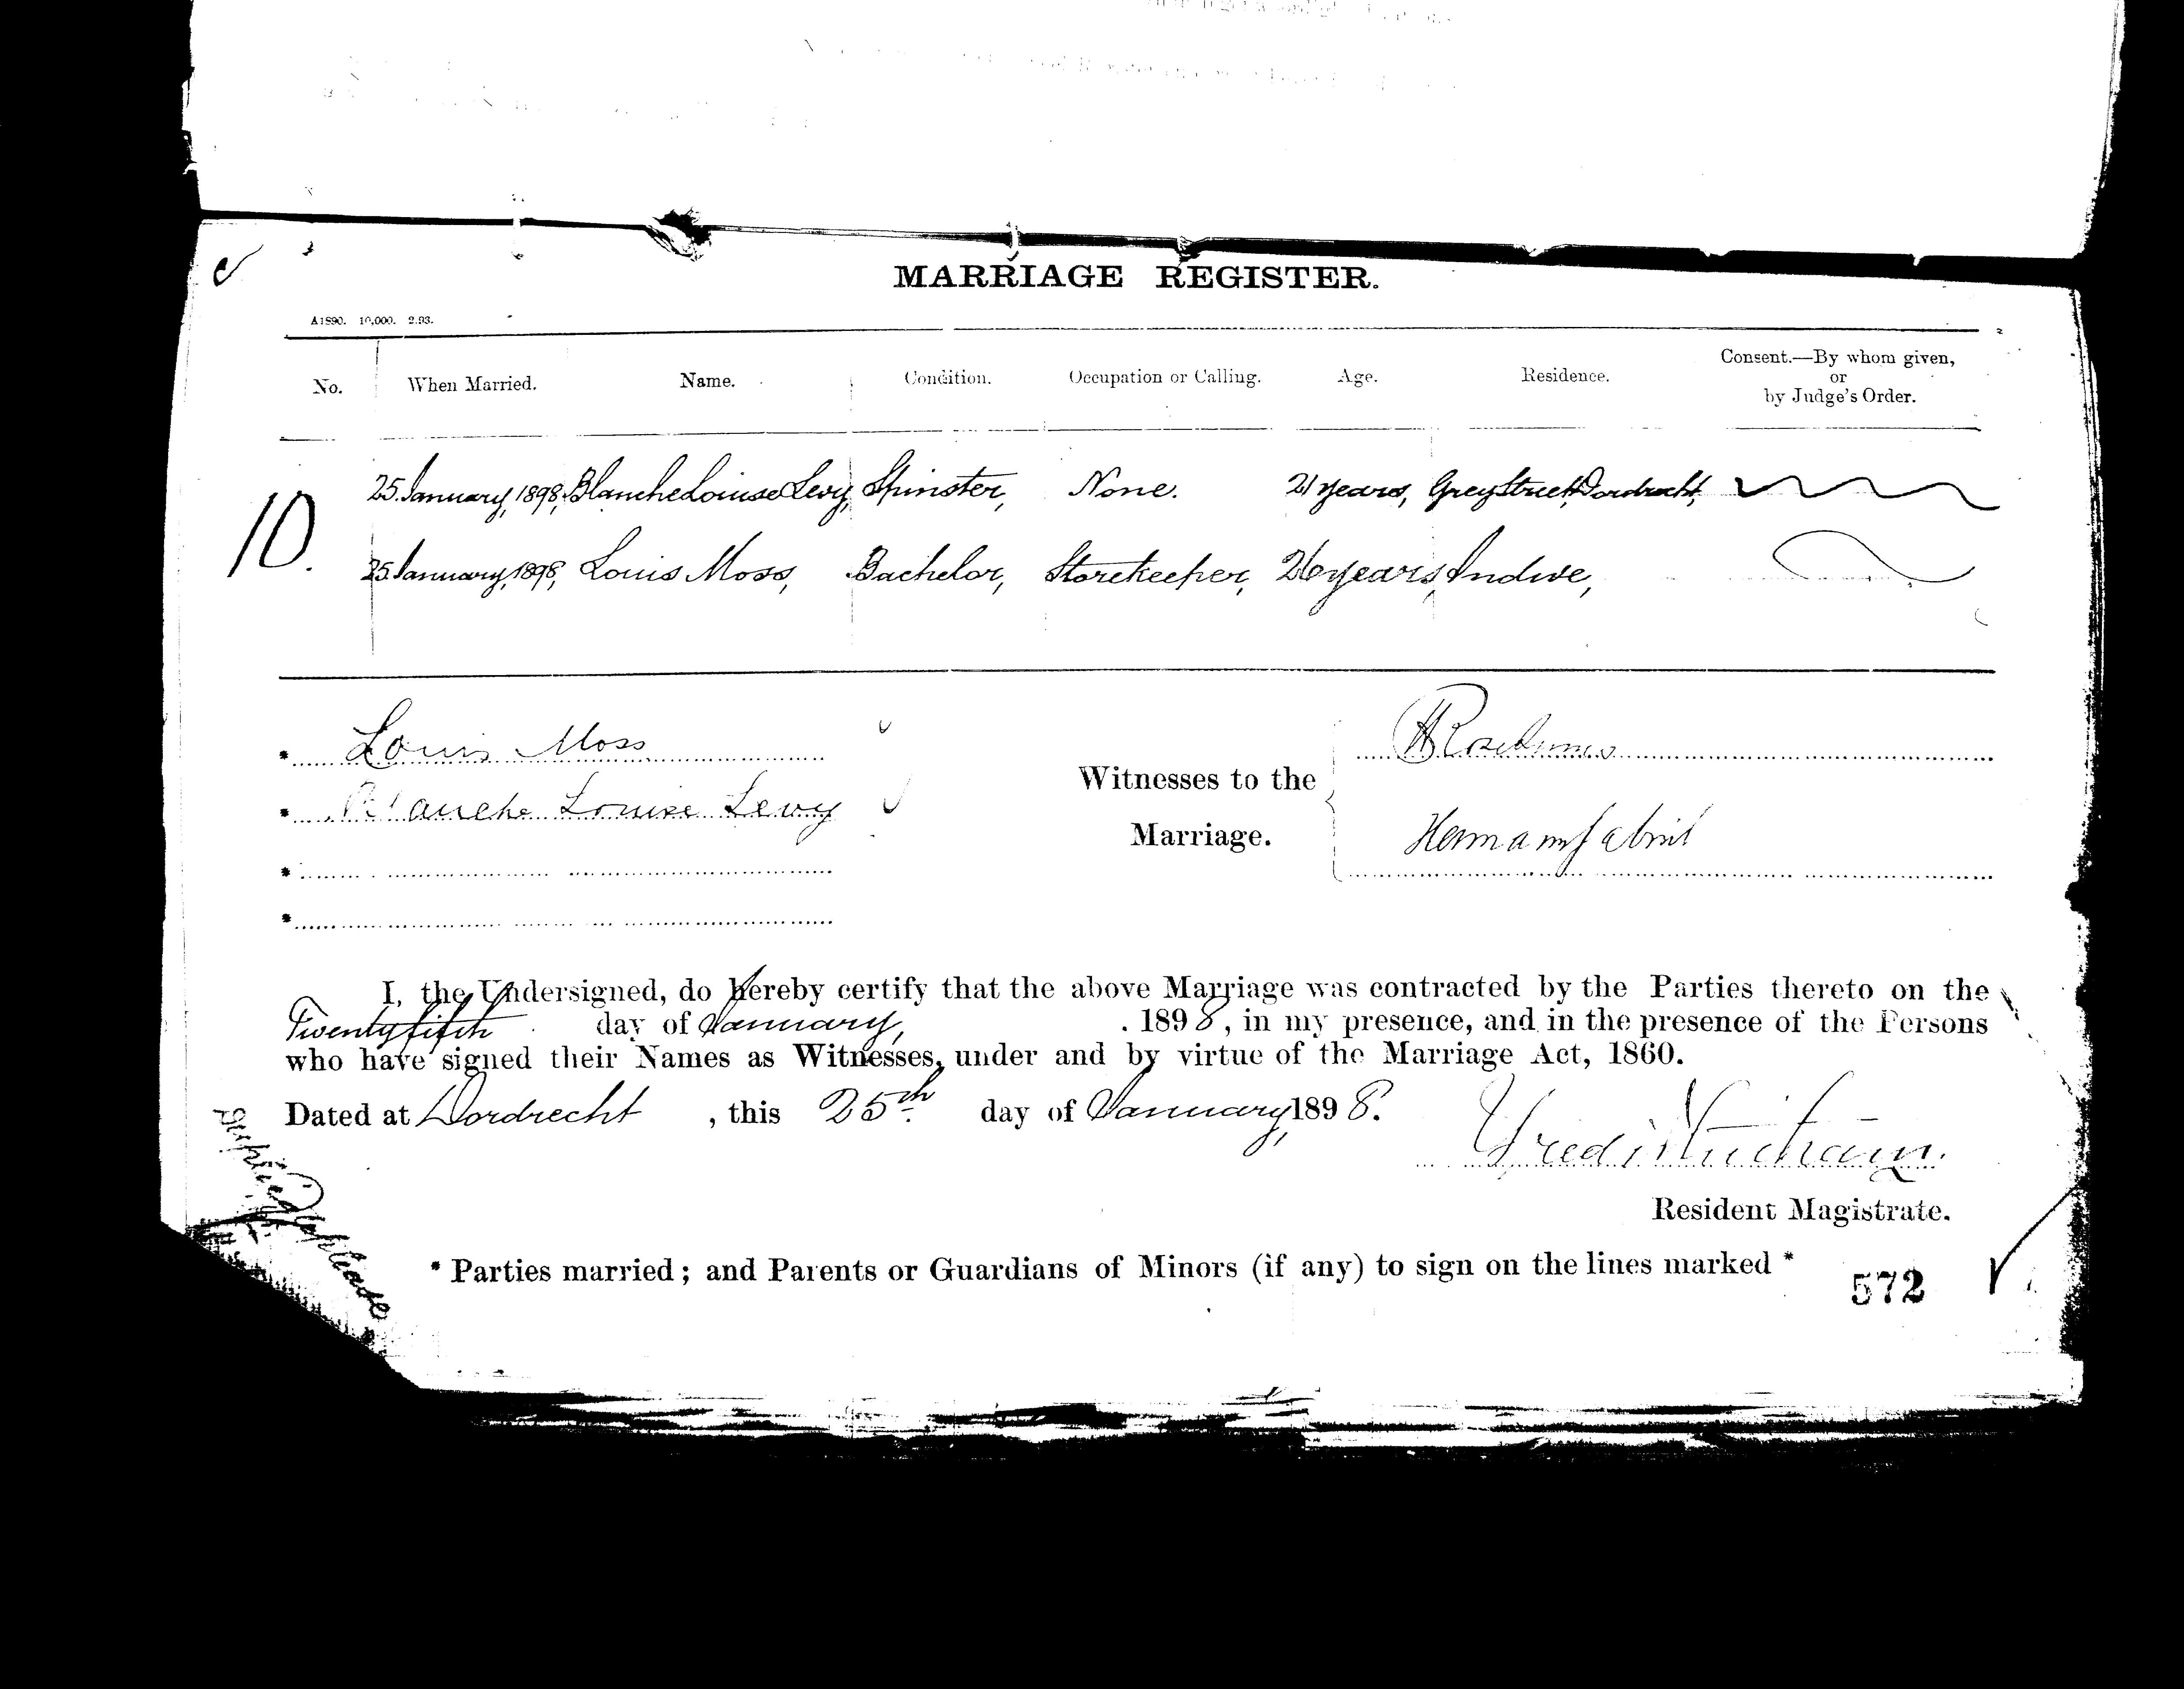 MARRIAGE REGISTER.
A1890. 10,000. 2.93.
No. When Married. Name. Condition. Occupation or Calling. Age. Residence. Consent.—By whom given, or by Judge's Order.
10.
25 January, 1898, Blanche Louise Levy, Spinster, None. 21 years, Grey Street Dordrecht,
25 January, 1898, Louis Moss, Bachelor, Storekeeper, 26 years, Indwe,
* Louis Moss
* Blanche Louise Levy
*
*
Witnesses to the
Marriage.
Hermann
I, the Undersigned, do hereby certify that the above Marriage was contracted by the Parties thereto on the
Twenty fifth day of January, 1898, in my presence, and in the presence of the Persons
who have signed their Names as Witnesses, under and by virtue of the Marriage Act, 1860.
Dated at Dordrecht, this 25th day of January, 1898.
Resident Magistrate.
* Parties married; and Parents or Guardians of Minors (if any) to sign on the lines marked *
572